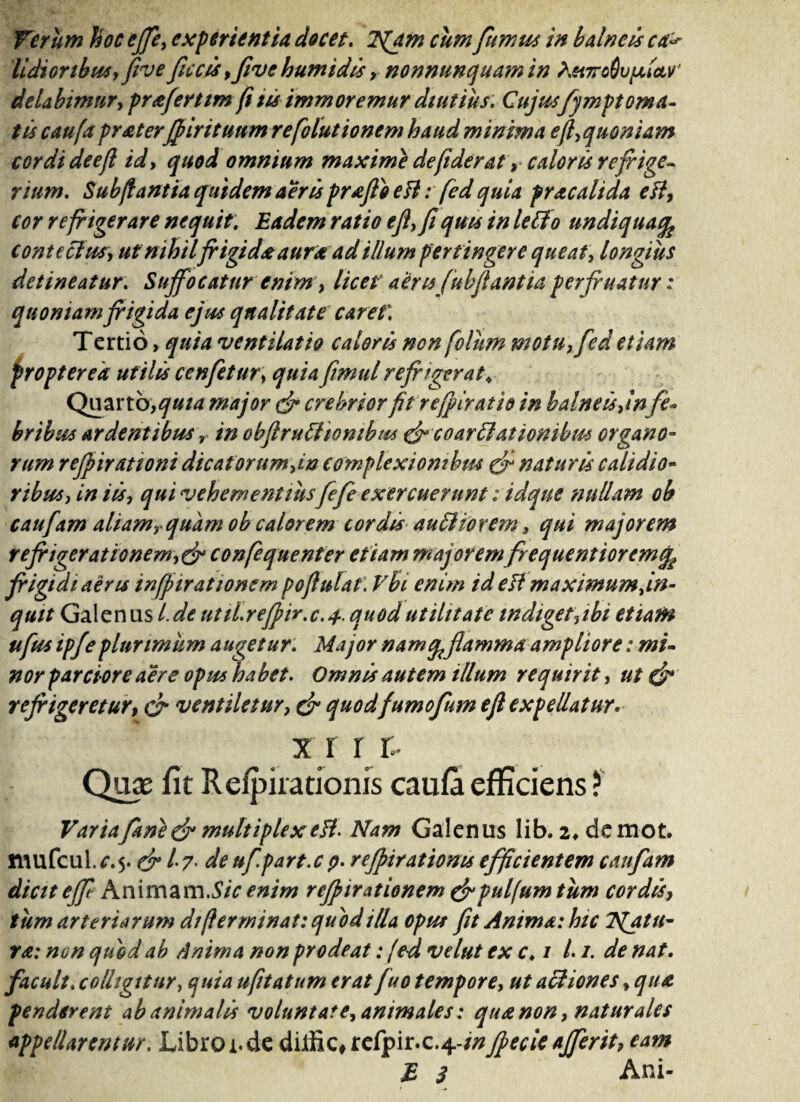 Verùm hoc eſſe, experientia docet. Nam cùm ſumus in balneis ca-
lidioribus, ſive ſiccis, ſive humidis, nonnunquam in λειποθυμίαν
delabimur, præſertim ſi iis immoremur diutiùs. Cujus ſymptoma-
tis cauſa præter ſpirituum reſolutionem haud minima eſt, quoniam
cordi deeſt id, quod omnium maximè deſiderat, caloris refrige-
rium. Subſtantia quidem aëris præſtò eſt: ſed quia præcalida eſt,
cor refrigerare nequit. Eadem ratio eſt, ſi quis in lecto undiquaq̃
contectus, ut nihil frigidæ auræ ad illum pertingere queat, longiùs
detineatur. Suffocatur enim, licet aëris ſubſtantia perfruatur:
quoniam frigida ejus qualitate caret.
Tertiò, quia ventilatio caloris non ſolùm motu, ſed etiam
proptereà utilis cenſetur, quia ſimul refrigerat.
Quartò, quia major & crebrior fit reſpiratio in balneis, in fe-
bribus ardentibus, in obſtructionibus & coarctationibus organo-
rum reſpirationi dicatorum, in complexionibus & naturis calidio-
ribus, in iis, qui vehementiùs ſeſe exercuerunt: idque nullam ob
cauſam aliam, quàm ob calorem cordis auctiorem, qui majorem
refrigerationem, & conſequenter etiam majorem frequentioremq̃
frigidi aëris inſpirationem poſtulat. Vbi enim id eſt maximum, in-
quit Galenus l. de util. reſpir. c. 4. quod utilitate indiget, ibi etiam
uſus ipſe plurimùm augetur. Major namq̃ flamma ampliore: mi-
nor parciore aëre opus habet. Omnis autem illum requirit, ut &
refrigeretur, & ventiletur, & quod fumoſum eſt expellatur.
XIII.
Quæ ſit Reſpirationis cauſa efficiens?
Varia ſanè & multiplex eſt. Nam Galenus lib. 2. de mot.
muſcul. c. 5. & l. 7. de uſ. part. c 9. reſpirationis efficientem cauſam
dicit eſſe Animam. Sic enim reſpirationem & pulſum tùm cordis,
tùm arteriarum diſterminat: quòd illa opus ſit Animæ: hic Natu-
ræ: non quòd ab Anima non prodeat: ſed velut ex c. 1 l. 1. de nat.
facult. colligitur, quia uſitatum erat ſuo tempore, ut actiones, quæ
penderent ab animalis voluntate, animales: quæ non, naturales
appellarentur. Libro 1. de diffic. reſpir. c. 4. in ſpecie aſſerit, eam
E 3 Ani-